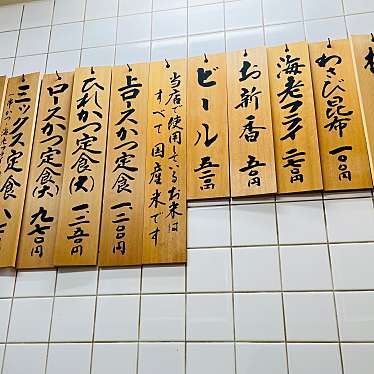 わさび昆布 一〇〇円
海老フライ 二七〇円
お新香 五〇円
ビール 五三〇円
当店で使用しているお米は
すべて国産米です
上ロースかつ定食 一、二〇〇円
ひれかつ定食(大) 一、二五〇円
ロースかつ定食(大) 九七〇円
ミックス定食